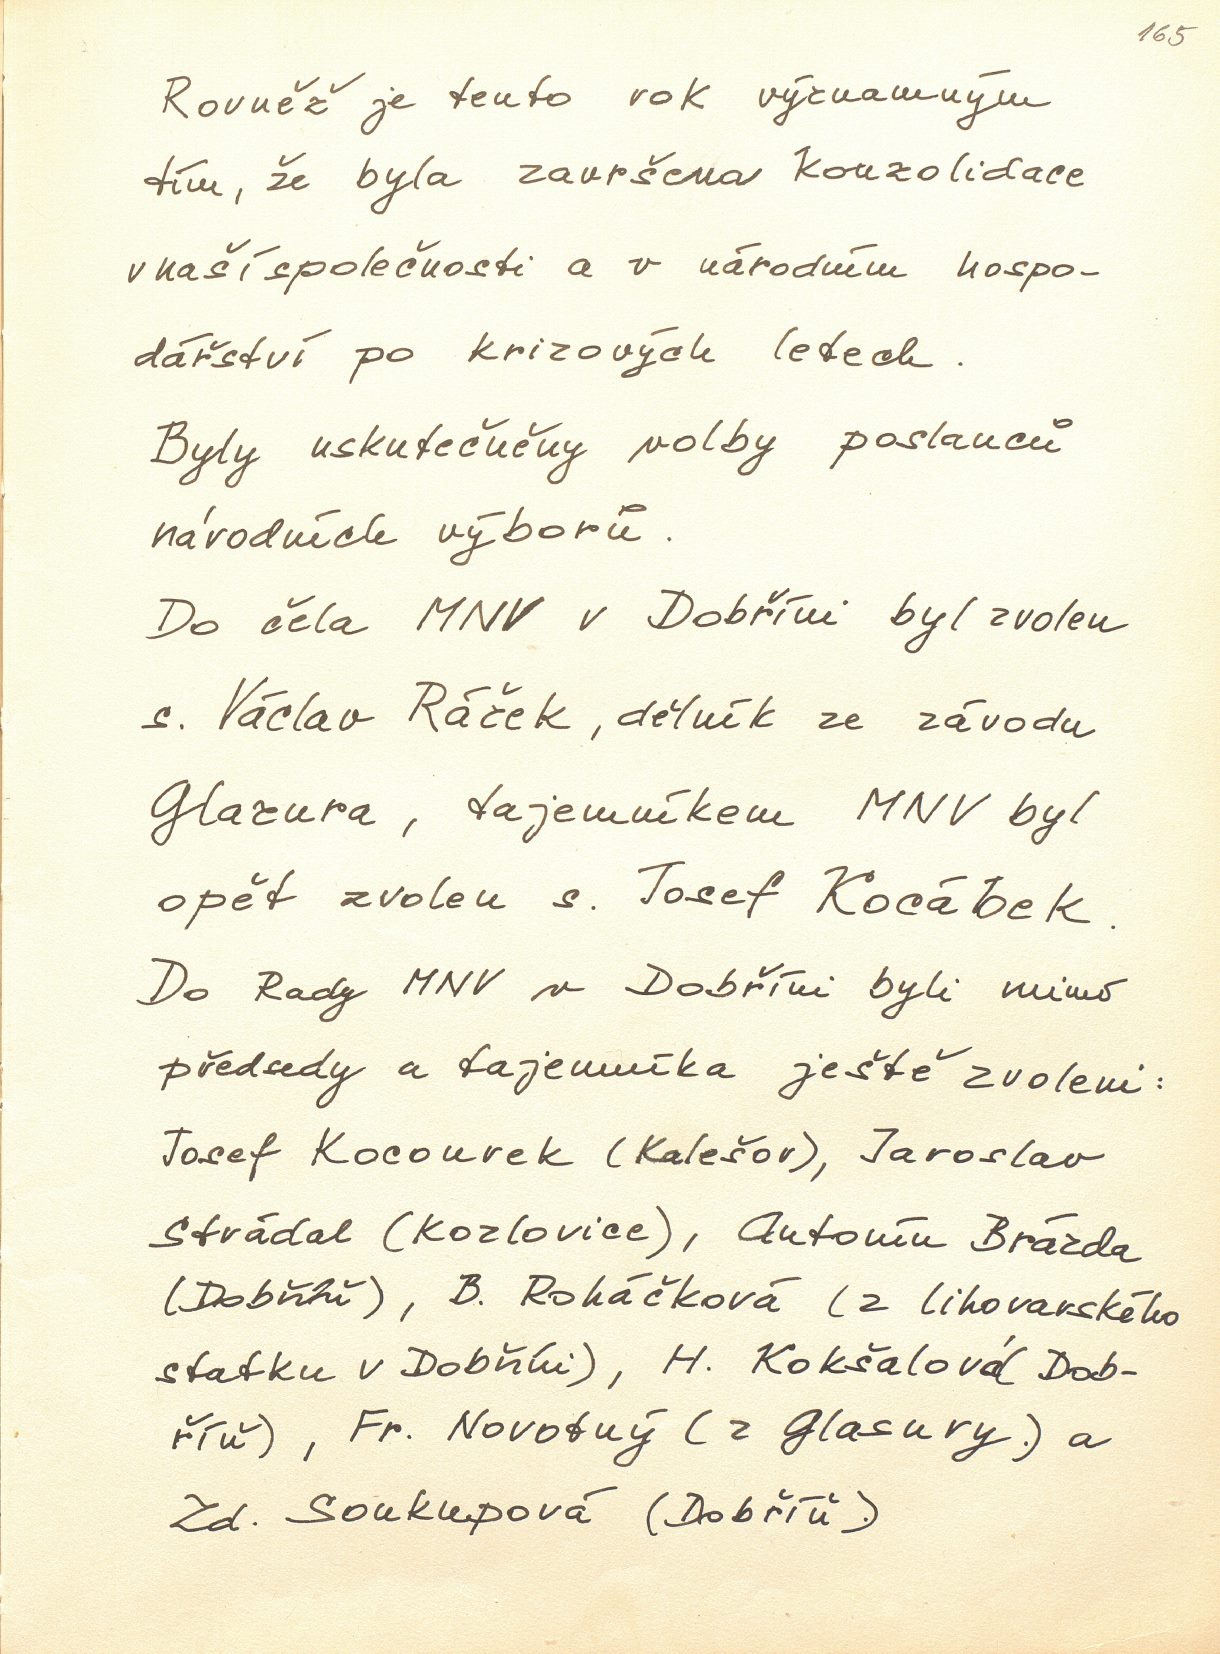 165
Rovněž je tento rok významným
tím, že byla završena konzolidace
v naší společnosti a v národním hospo-
dářství po krizových letech.
Byly uskutečněny volby poslanců
národních výborů.
Do čela MNV v Dobříni byl zvolen
s. Václav Ráček, dělník ze závodu
Glazura, tajemníkem MNV byl
opět zvolen s. Josef Kocábek.
Do Rady MNV v Dobříni byli mimo
předsedy a tajemníka ještě zvoleni:
Josef Kocourek (Kalešov), Jaroslav
Strádal (Kozlovice), Antonín Brázda
(Dobříň), B. Roháčková (z lihovarského
statku v Dobříni), H. Kokšalová (Dob-
říň), Fr. Novotný (z Glasury.) a
Zd. Soukupová (Dobříň.)